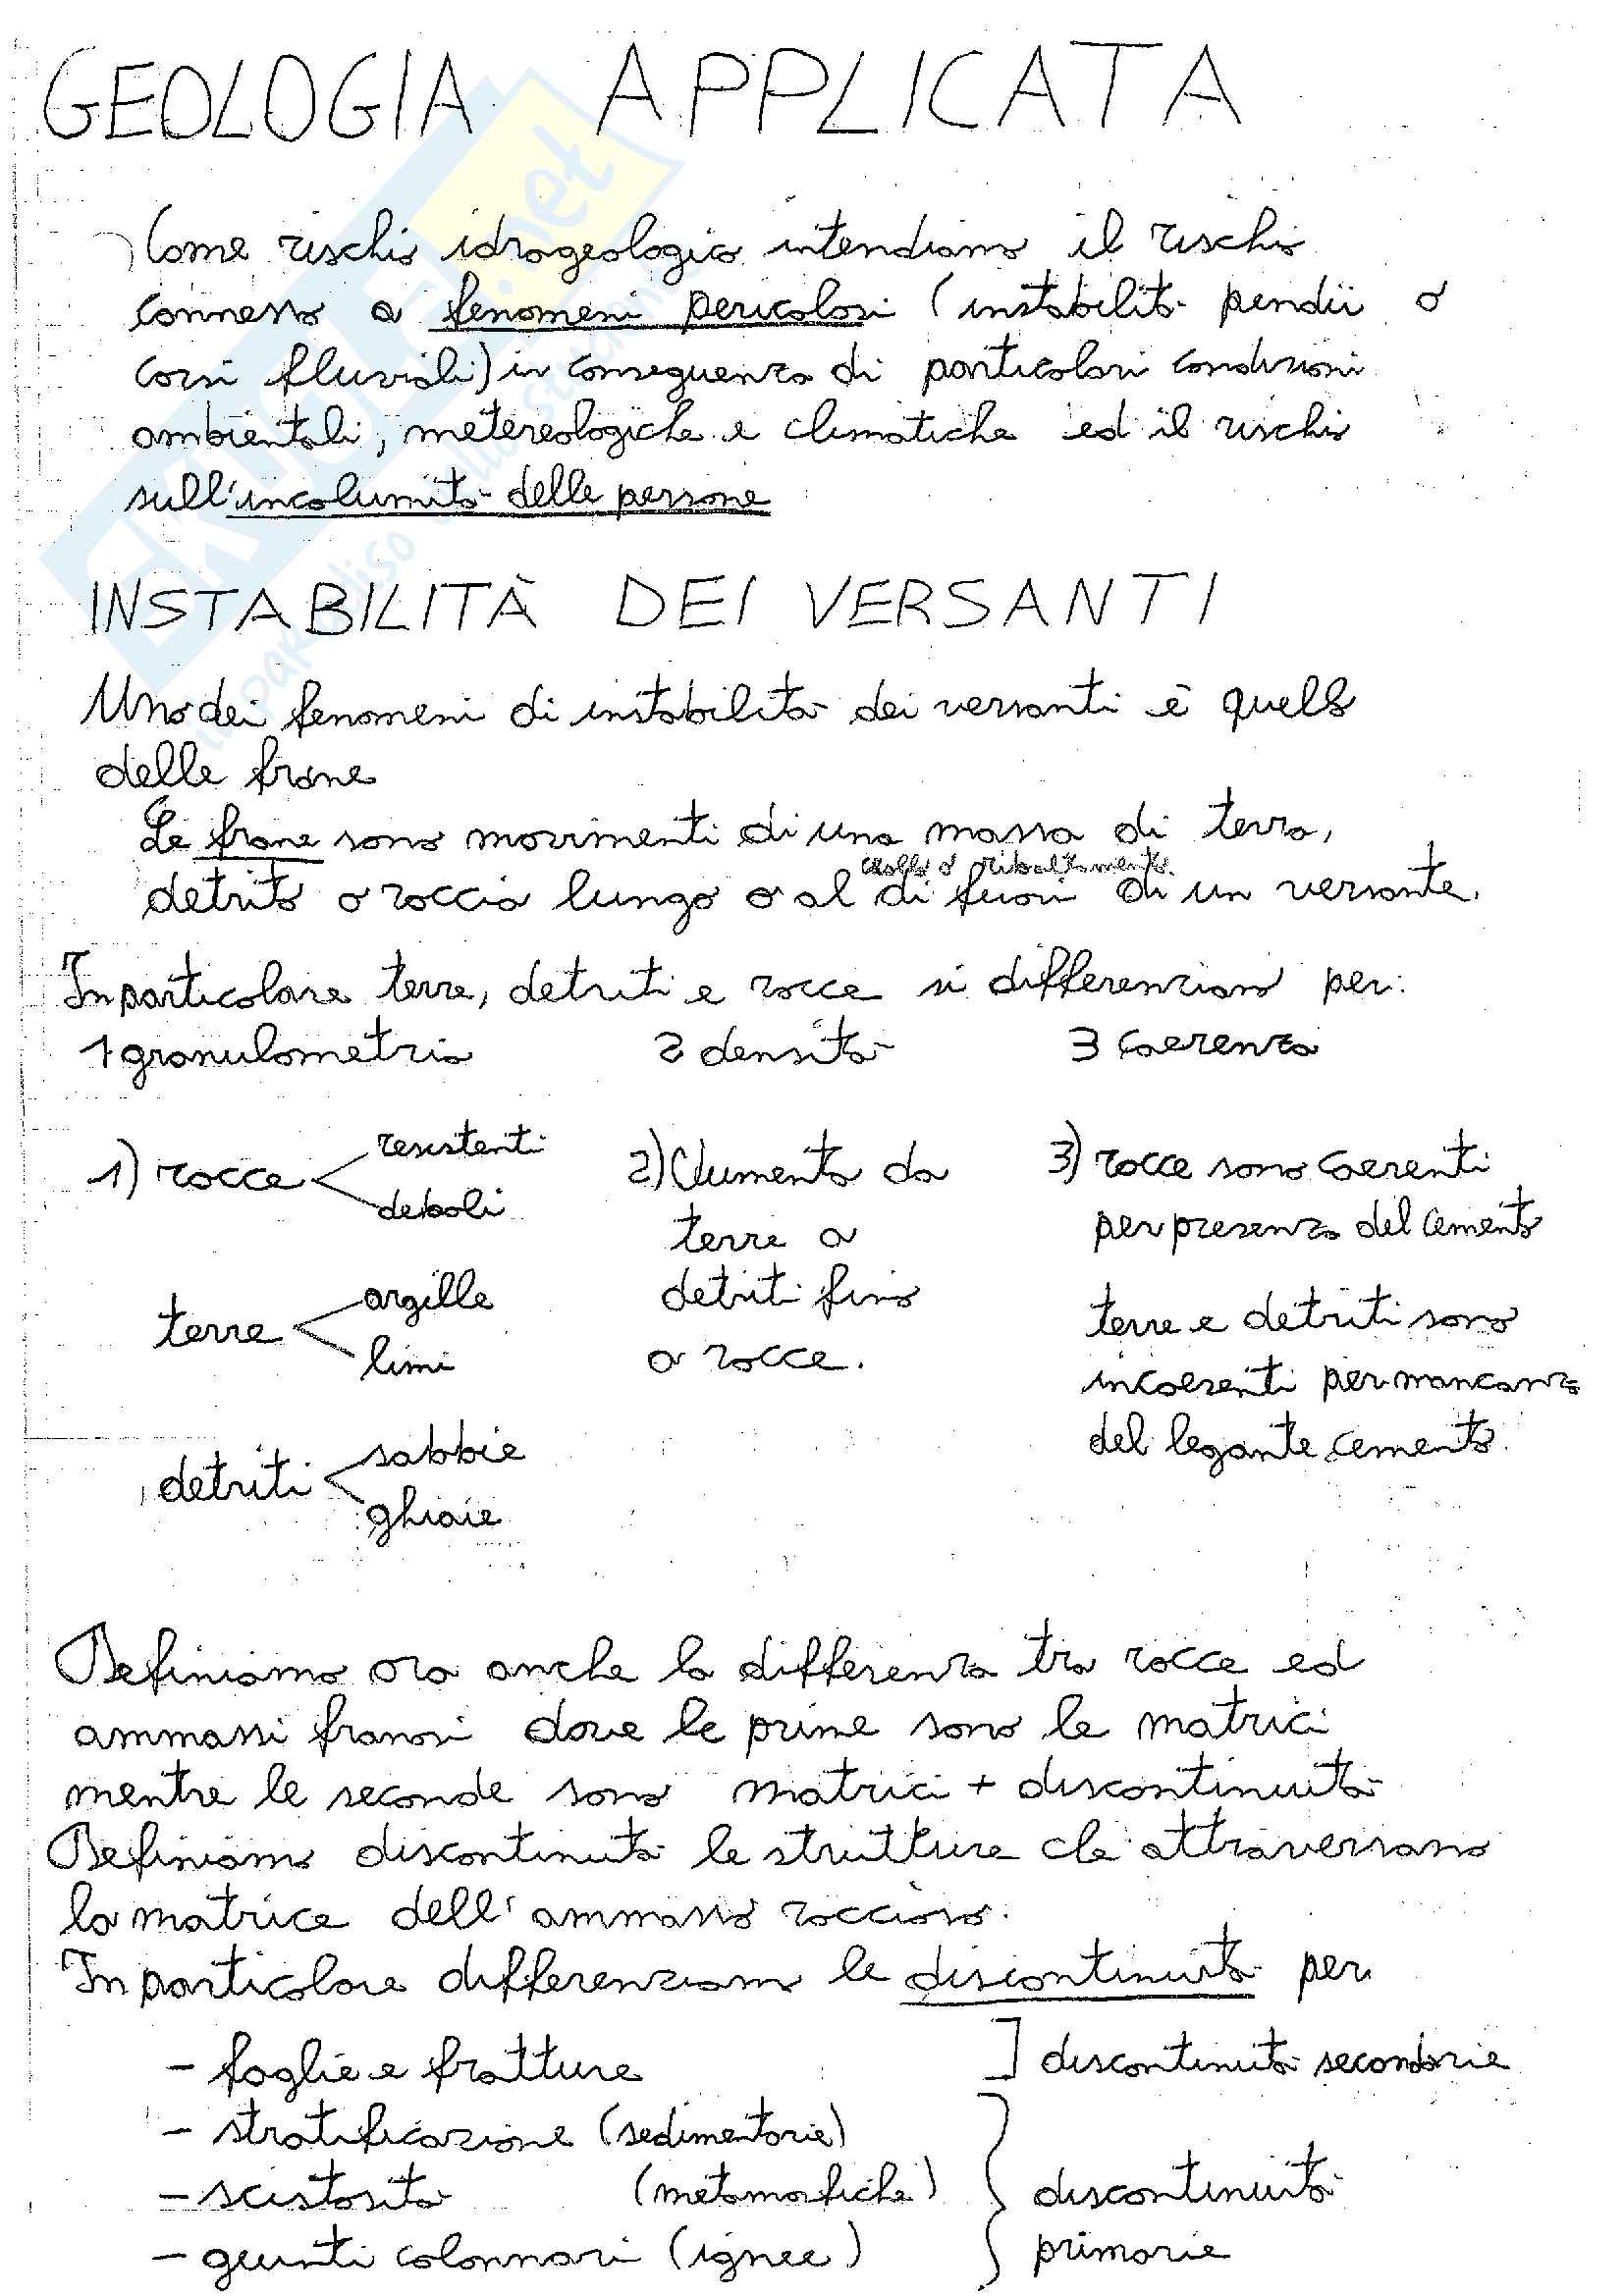 GEOLOGIA APPLICATA
Come rischio idrogeologico intendiamo il rischio
connesso a fenomeni pericolosi (instabilità pendii o
corsi fluviali) in conseguenza di particolari condizioni
ambientali, metereologiche e climatiche ed il rischio
sull'incolumità delle persone
INSTABILITÀ DEI VERSANTI
Uno dei fenomeni di instabilità dei versanti è quello
delle frane
Le frane sono movimenti di una massa di terra,
crollo o ribaltamento.
detrito o roccia lungo o al di fuori di un versante.
In particolare terre, detriti e rocce si differenziano per:
1 granulometria 2 densità 3 coerenza
1) rocce resistenti deboli
terre argille limi
detriti sabbie ghiaie
2) Aumenta da
terre a
detriti fino
a rocce.
3) rocce sono coerenti
per presenza del cemento
terre e detriti sono
incoerenti per mancanza
del legante cemento.
Definiamo ora anche la differenza tra rocce ed
ammassi franosi dove le prime sono le matrici
mentre le seconde sono matrici + discontinuità
Definiamo discontinuità le strutture che attraversano
la matrice dell'ammasso roccioso.
In particolare differenziamo le discontinuità per
- faglie e fratture ] discontinuità secondarie
- stratificazione (sedimentarie)
- scistosità (metamorfiche) } discontinuità
- giunti colonnari (ignee) primarie